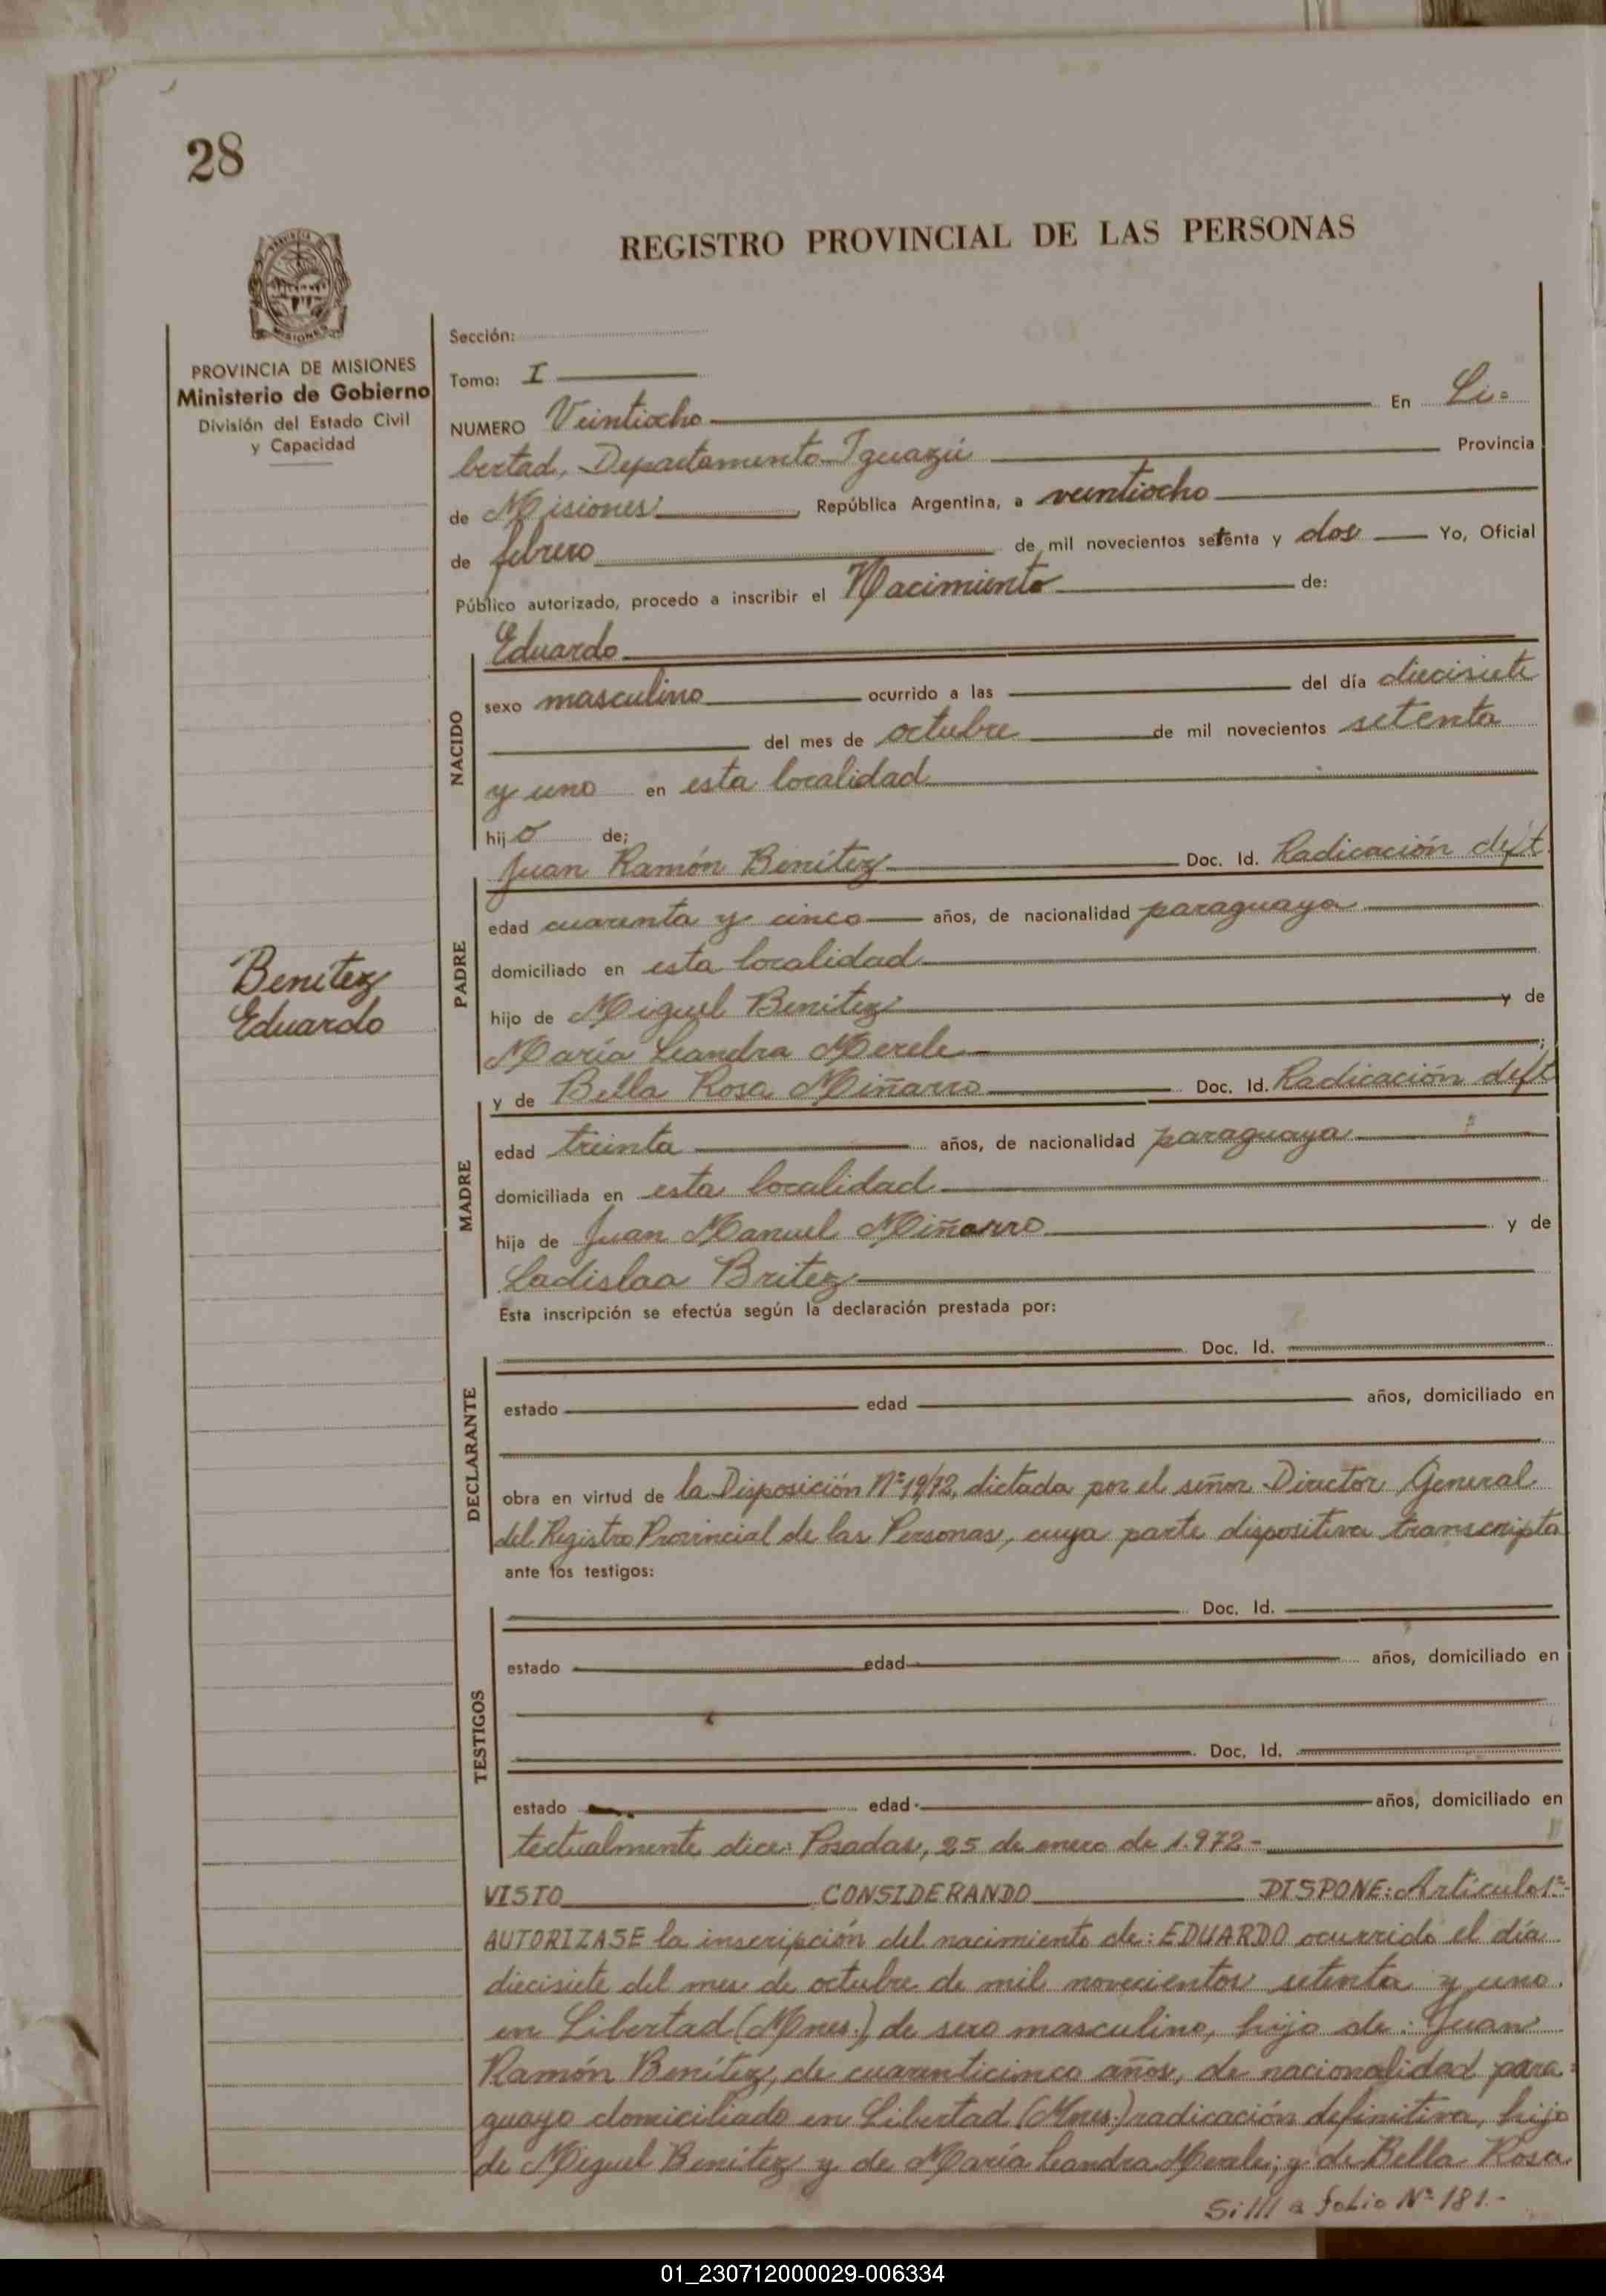 28
REGISTRO PROVINCIAL DE LAS PERSONAS
MISIONES
PROVINCIA DE MISIONES
Ministerio de Gobierno
División del Estado Civil
y Capacidad
Benitez
Eduardo
Sección:
Tomo: I
NUMERO Veintiocho En Li-
bertad, Departamento Iguazú Provincia
de Misiones, República Argentina, a veintiocho
de febrero de mil novecientos setenta y dos Yo, Oficial
Público autorizado, procedo a inscribir el Nacimiento de:
NACIDO
Eduardo
sexo masculino ocurrido a las del día diecisiete
del mes de octubre de mil novecientos setenta
y uno en esta localidad
hijo de;
PADRE
Juan Ramón Benítez Doc. Id. Radicación def/t.
edad cuarenta y cinco años, de nacionalidad paraguaya
domiciliado en esta localidad
hijo de Miguel Benitez y de
María Leandra Merele;
MADRE
y de Bella Rosa Miñarro Doc. Id. Radicación def/t
edad treinta años, de nacionalidad paraguaya
domiciliada en esta localidad
hija de Juan Manuel Miñarro y de
Ladislaa Britez
Esta inscripción se efectúa según la declaración prestada por:
DECLARANTE
Doc. Id.
estado edad años, domiciliado en
obra en virtud de la Disposición Nº 19/72, dictada por el señor Director General
del Registro Provincial de las Personas, cuya parte dispositiva transcripta
ante los testigos:
TESTIGOS
Doc. Id.
estado edad años, domiciliado en
Doc. Id.
estado edad años, domiciliado en
textualmente dice: Posadas, 25 de enero de 1.972-
VISTO CONSIDERANDO DISPONE: Artículo 1º-
AUTORIZASE la inscripción del nacimiento de: EDUARDO ocurrido el día
diecisiete del mes de octubre de mil novecientos setenta y uno
en Libertad (Mnes.) de sexo masculino, hijo de: Juan
Ramón Benítez, de cuarenticinco años, de nacionalidad para-
guayo domiciliado en Libertad (Mnes.) radicación definitiva, hijo
de Miguel Benitez y de María Leandra Merele; y de Bella Rosa
a folio Nº 181.-
01_230712000029-006334